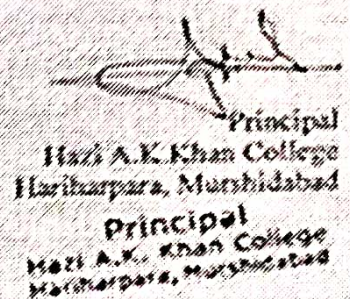 Principal
Hazi A.K. Khan College
Hariharpara, Murshidabad
Principal
Hazi A.K. Khan College
Hariharpara, Murshidabad